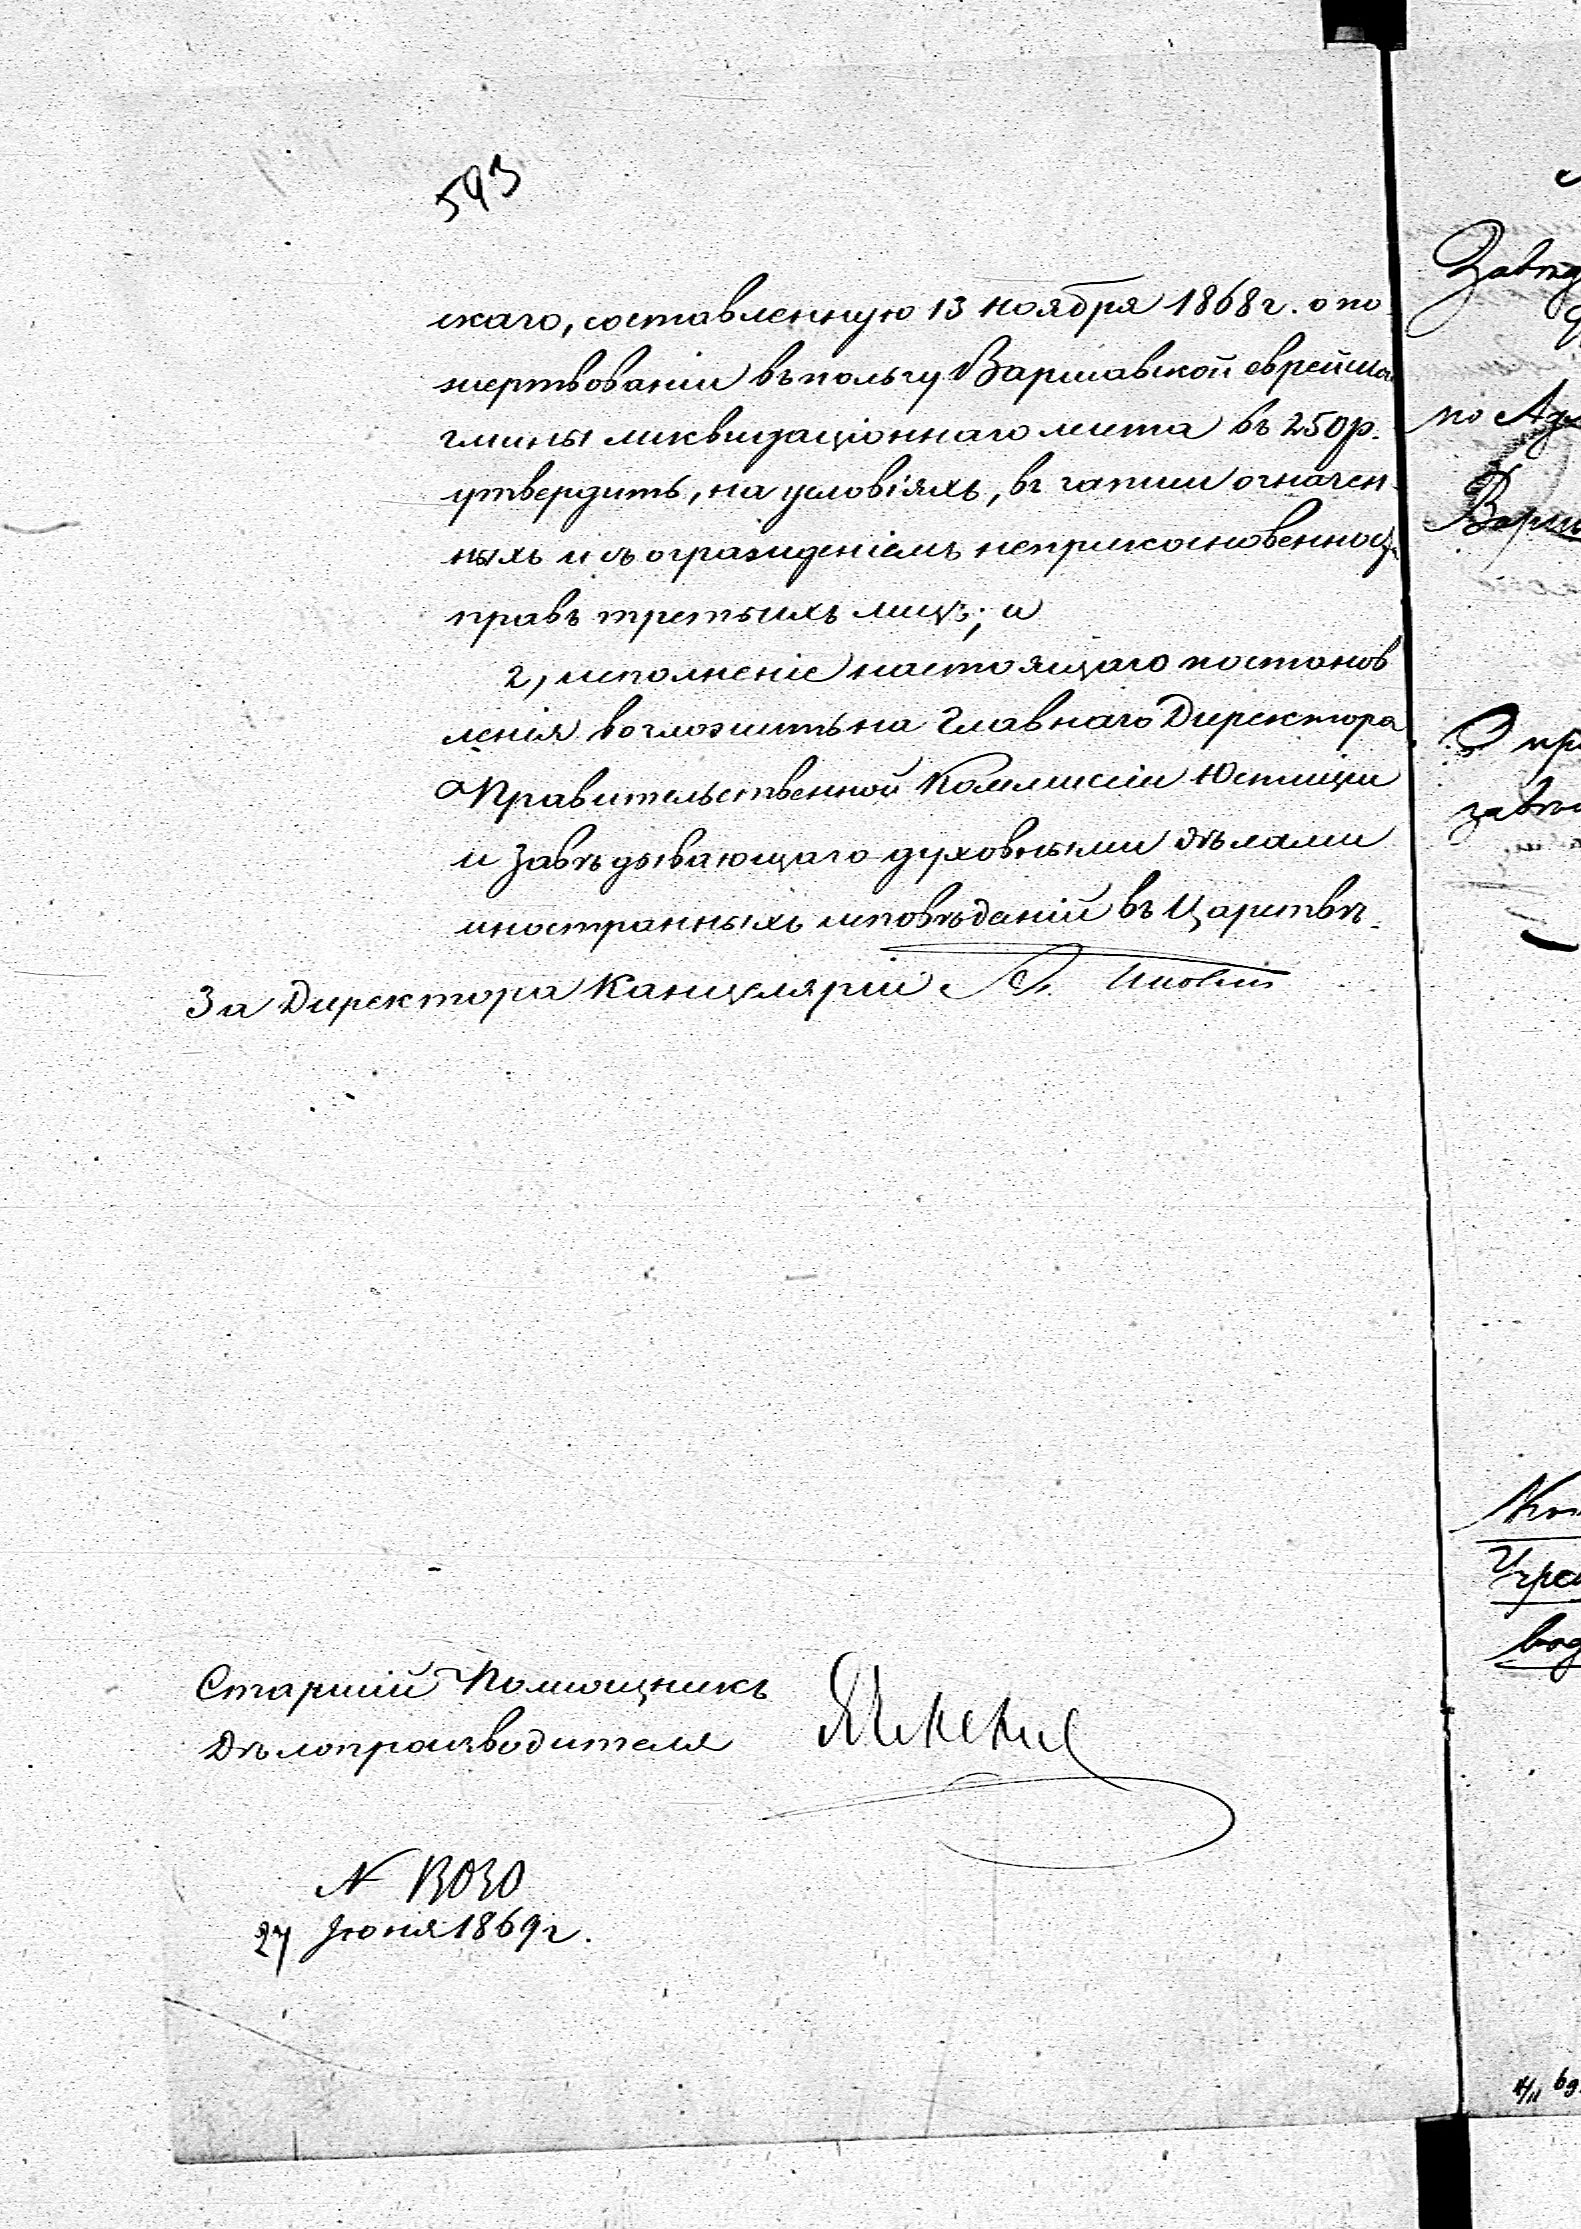 593
скаго, составленную 13 ноября 1868 г. о по-
жертвованіи въ пользу Варшавской еврейской
гмины ликвидаціоннаго листа въ 250 р.
утвердить, на условіяхъ, въ записи означен-
ныхъ и съ огражденіемъ неприкосновенности
правъ третьихъ лицъ; и
2, исполненіе настоящаго постанов
ленія возложить на Главнаго Директора
Правительственной Коммисіи Юстиціи
и завѣдывающаго духовными дѣлами
иностранныхъ исповѣданій въ Царствѣ.
За Директора Канцеляріи
Старшій Помощникъ
Дѣлопроизводителя
N 13030
27 Іюня 1869 г.
Завѣд
по
Варш
О при
завѣ
Учре
вод